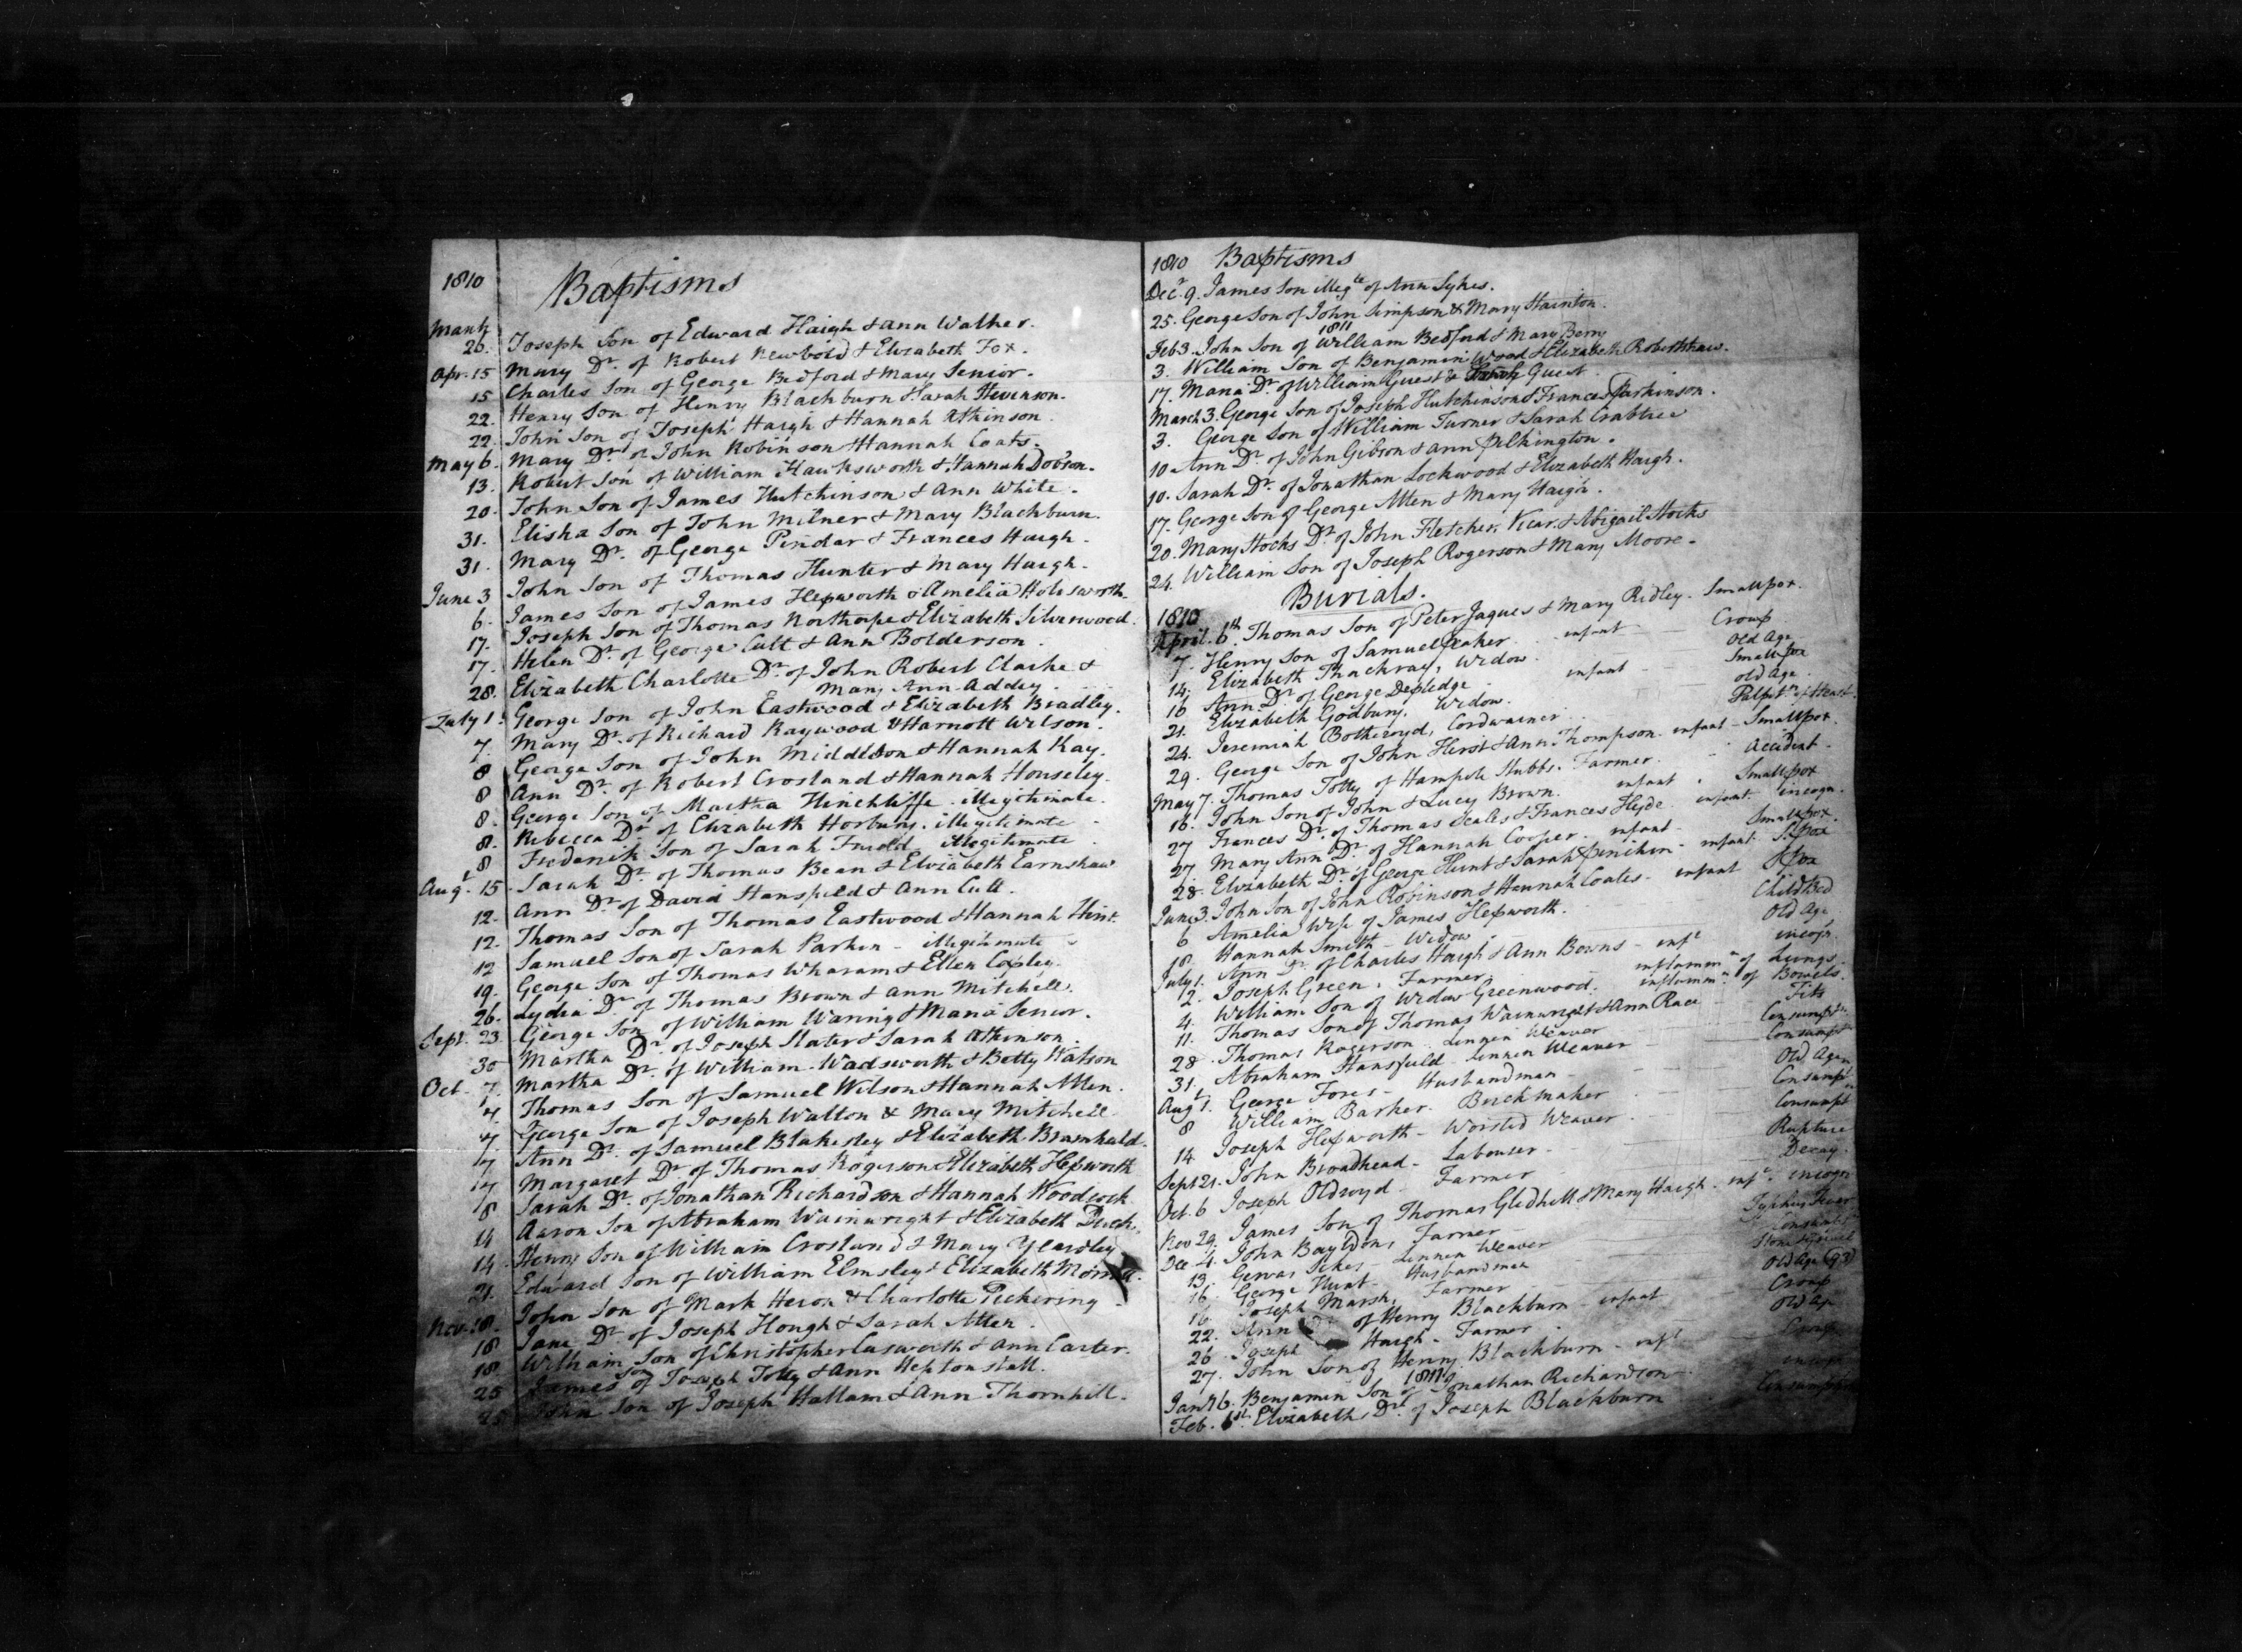 1810
Baptisms
March
26. Joseph Son of Edward Haigh & Ann Walker.
Apr. 15 Mary Dr. of Robert Newbold & Elizabeth Fox.
15 Charles Son of George Bedford & Mary Senior.
22. Henry Son of Henry Blackburn & Sarah Stevenson.
22. John Son of Joseph Haigh & Hannah Atkinson.
May 6. Mary Dr. of John Robinson & Hannah Coats.
13. Robert Son of William Hawksworth & Hannah Dobson.
20. John Son of James Hutchinson & Ann White.
31. Elisha Son of John Milner & Mary Blackburn.
31. Mary Dr. of George Pindar & Frances Haigh.
June 3 John Son of Thomas Hunter & Mary Haigh.
6. James Son of James Hepworth & Amelia Holdsworth.
17. Joseph Son of Thomas Northorpe & Elizabeth Silverwood.
17. Helen Dr. of George Cutt & Ann Bolderson.
28. Elizabeth Charlotte Dr. of John Robert Clarke &
Mary Ann Addey.
July 1. George Son of John Eastwood & Elizabeth Bradley.
7. Mary Dr. of Richard Raywood & Harriott Wilson.
8 George Son of John Middleton & Hannah Kay.
8 Ann Dr. of Robert Crosland & Hannah Houseley.
8. George Son of Martha Hinchliffe illegitimate.
8. Rebecca Dr. of Elizabeth Horbury. illegitimate
8 Frederick Son of Sarah illegitimate
Augt. 15. Sarah Dr. of Thomas Bean & Elizabeth Earnshaw
12. Ann Dr. of David Hansfield & Ann Cutt.
12. Thomas Son of Thomas Eastwood & Hannah Hirst.
12 Samuel Son of Sarah Parkin - illegitimate
19. George Son of Thomas Wharam & Ellen Copley.
26. Lydia Dr. of Thomas Brown & Ann Mitchell.
Sept. 23. George Son of William Waring & Maria Senior.
30 Martha Dr. of Joseph Slater & Sarah Atkinson.
Oct. 7. Martha Dr. of William Wadsworth & Betty Watson
7 Thomas Son of Samuel Wilson & Hannah Allen.
7. George Son of Joseph Walton & Mary Mitchell
7 Ann Dr. of Samuel Blakeley & Elizabeth Bramhald.
17 Margaret Dr. of Thomas Rogerson & Elizabeth Hepworth
8 Sarah Dr. of Jonathan Richardson & Hannah Woodcock.
14 Aaron Son of Abraham Wainwright & Elizabeth
14. Henry Son of William Crosland & Mary Yeardley
21. Edward Son of William Elmsley & Elizabeth
Nov. 18. John Son of Mark Heron & Charlotte Pickering
18 Jane Dr. of Joseph Hough & Sarah Allen.
18. William Son of Christopher Cusworth & Ann Carter.
25 James Son of Joseph Totty & Ann Heptonstall.
25 John Son of Joseph Hallam & Ann Thornhill.
1810 Baptisms
Decr. 9. James Son illegte of Ann Sykes.
25. George Son of John Simpson & Mary Stainton.
1811
Feb 3. John Son of William Bedford & Mary Berry
3. William Son of Benjamin Wood & Elizabeth Robertshaw.
17. Maria Dr. of William Guest & Sarah Guest.
March 3. George Son of Joseph Hutchinson & Frances Parkinson.
3. George Son of William Turner & Sarah Crabtree
10 Ann Dr. of John Gibson & Ann Pilkington.
10. Sarah Dr. of Jonathan Lockwood & Elizabeth Haigh.
17. George Son of George Allen & Mary Haigh.
20. Mary Stocks Dr. of John Fletcher, Vicar, & Abigail Stocks
24. William Son of Joseph Rogerson & Mary Moore.
Burials.
1810
April. 6th. Thomas Son of Peter Jaques & Mary Ridley. Smallpox.
7. Henry Son of Samuel infant Croup
14. Elizabeth Thackray, Widow. Old Age
16 Ann Dr. of George Depledge infant Smallpox
21. Elizabeth Godbury. Widow. old Age.
24. Jeremiah Botheroyd, Cordwainer. Palpitn of Heart.
29. George Son of John Hirst & Ann Thompson. infant Smallpox.
May 7. Thomas Totty of Hampole Stubbs. Farmer. Accident.
16. John Son of John & Lucy Brown. infant. Smallpox
27 Frances Dr. of Thomas Scales & Frances Hyde. infant incogn.
27. Mary Ann Dr. of Hannah Cooper. infant Smallpox.
28. Elizabeth Dr. of George Hunt & Sarah infant. S.Pox
June 3. John Son of John Robinson & Hannah Coates. infant S.Pox
6 Amelia Wife of James Hepworth. Child Bed
18. Hannah Smith - Widow. Old Age
July 1. Ann Dr. of Charles Haigh & Ann Bowns - inft incogn.
2. Joseph Green, Farmer. inflammn of Lungs
4. William Son of Widow Greenwood. inflammn of Bowels
11. Thomas Son of Thomas Wainwright & Ann Race Fits
28. Thomas Rogerson. Linnen Weaver Consumptn
31. Abraham Hansfield. Linnen Weaver Consumptn
Augt 1. George Fores - Husbandman Old Age
8 William Barker. Brickmaker Consumptn
14 Joseph Hepworth - Worsted Weaver. Consumpt
Sept 21. John Broadhead - Labourer Rupture
Oct. 6 Joseph Oldroyd - Farmer Decay.
Nov 29. James Son of Thomas Gledhill & Mary Haigh. inft. incogn
Dec 4. John Baildon, Farmer Typhus Fever
13. Gervas Sikes - Linnen Weaver Consumpt
16. George Hunt - Husbandman
16 Joseph Marsh, Farmer Old Age (93)
22. Ann of Henry Blackburn - infant Croup
26. Joseph Haigh - Farmer. Old Age
27. John Son of Henry Blackburn - inft Croup
1811
Jany 6. Benjamin Son of Jonathan Richardson incogn
Feb. 1st. Elizabeth Dr. of Joseph Blackburn Consumption